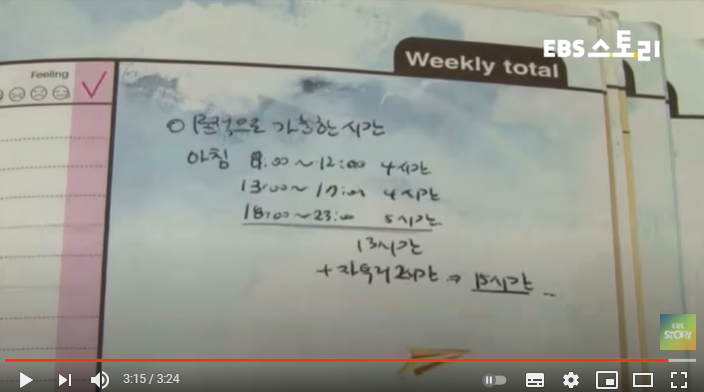 EBS 스토리
Weekly total
Feeling
이론적으로 가능한 시간
아침 8:00~12:00 4시간
13:00~17:00 4시간
18:00~23:00 5시간
13시간
+ 자투리 2시간 ⇒ 15시간 ..
EBS
STORY
3:15 / 3:24